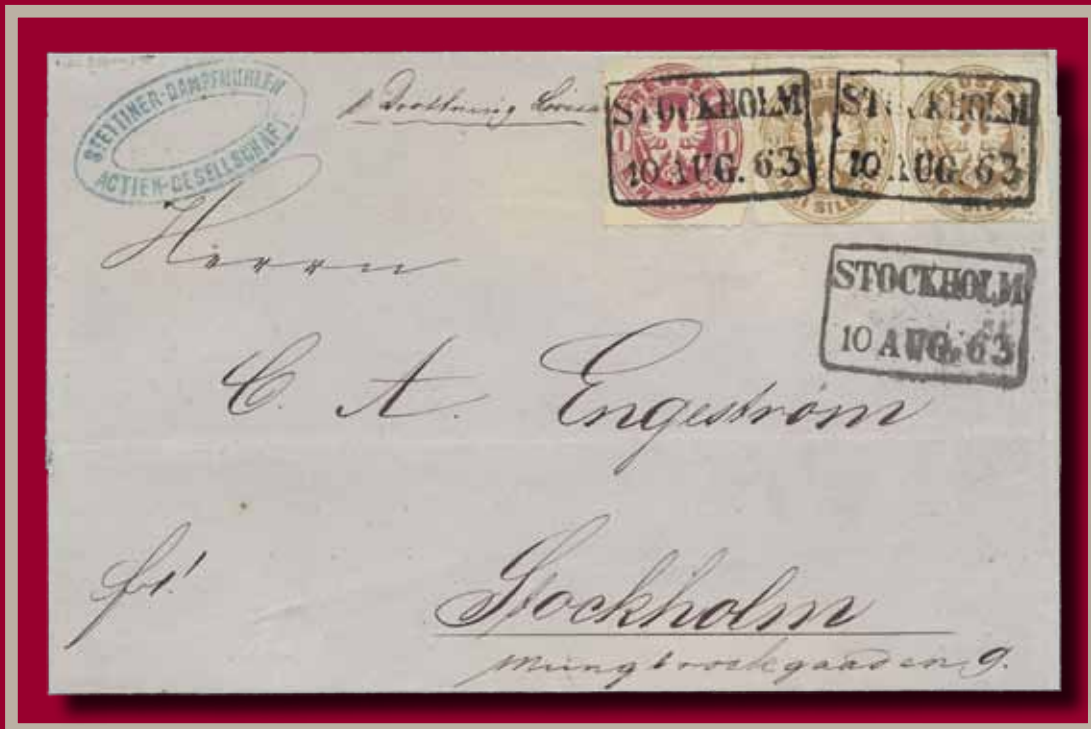 STETTINER-DAMPFMÜHLEN
ACTIEN-GESELLSCHAFT.
p Drottning Lovisa
STOCKHOLM
10 AUG. 63
STOCKHOLM
10 AUG. 63
1 1
STOCKHOLM
10 AUG. 63
Herrn
C. A. Engeström
fr!
Stockholm
9.